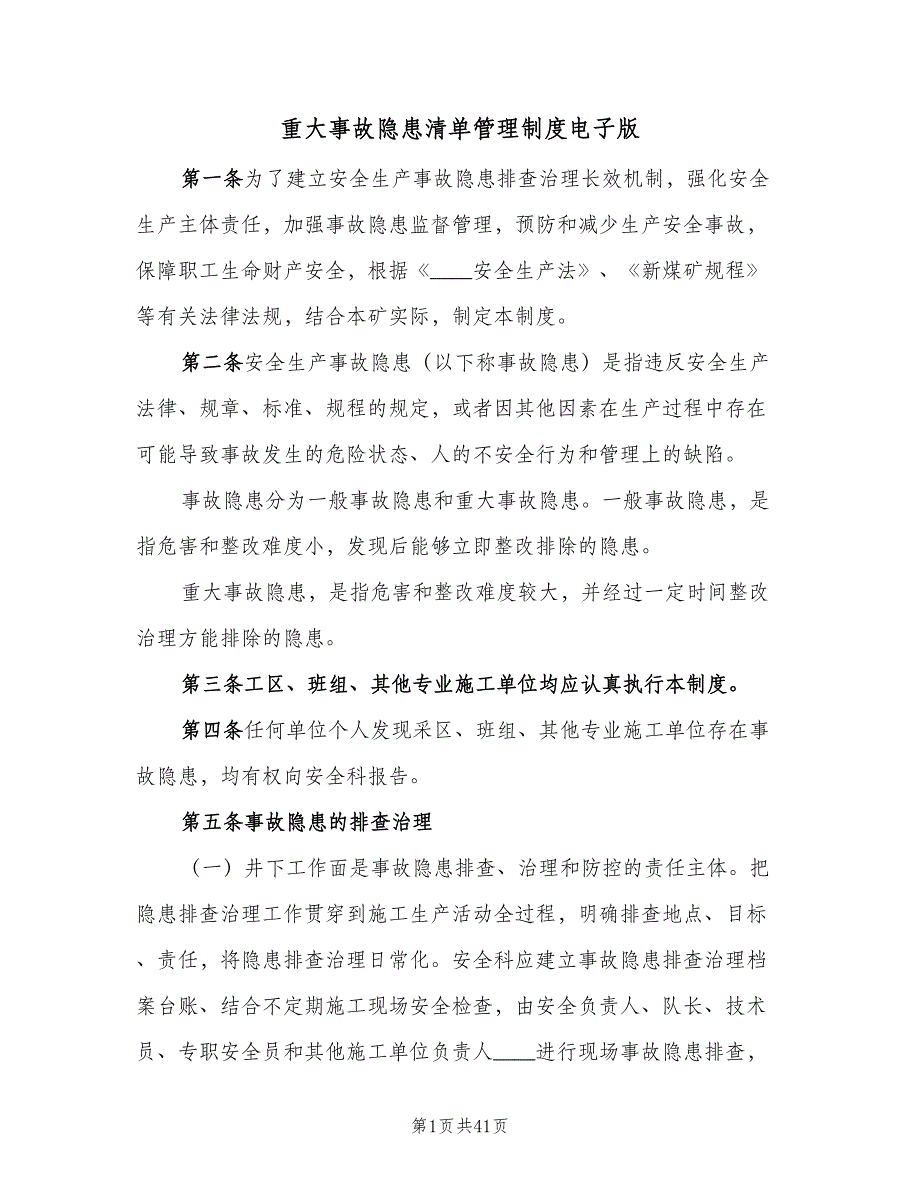 重大事故隐患清单管理制度电子版
第一条为了建立安全生产事故隐患排查治理长效机制，强化安全
生产主体责任，加强事故隐患监督管理，预防和减少生产安全事故，
保障职工生命财产安全，根据《____安全生产法》、《新煤矿规程》
等有关法律法规，结合本矿实际，制定本制度。
第二条安全生产事故隐患（以下称事故隐患）是指违反安全生产
法律、规章、标准、规程的规定，或者因其他因素在生产过程中存在
可能导致事故发生的危险状态、人的不安全行为和管理上的缺陷。
事故隐患分为一般事故隐患和重大事故隐患。一般事故隐患，是
指危害和整改难度小，发现后能够立即整改排除的隐患。
重大事故隐患，是指危害和整改难度较大，并经过一定时间整改
治理方能排除的隐患。
第三条工区、班组、其他专业施工单位均应认真执行本制度。
第四条任何单位个人发现采区、班组、其他专业施工单位存在事
故隐患，均有权向安全科报告。
第五条事故隐患的排查治理
（一）井下工作面是事故隐患排查、治理和防控的责任主体。把
隐患排查治理工作贯穿到施工生产活动全过程，明确排查地点、目标
、责任，将隐患排查治理日常化。安全科应建立事故隐患排查治理档
案台账、结合不定期施工现场安全检查，由安全负责人、队长、技术
员、专职安全员和其他施工单位负责人____进行现场事故隐患排查，
第1页共41页